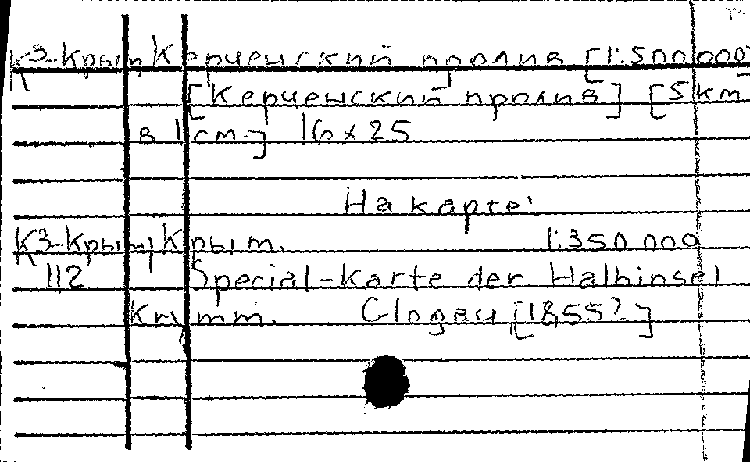 К3-Крым Керченский пролив [1:500 000]
[Керченский пролив] [5 km
в 1 см.] 16 x 25
На карте:
К3-Крым Крым. 1:350 000
112 Special-Karte der Halbinsel
Krymm. Glogau [1855?]